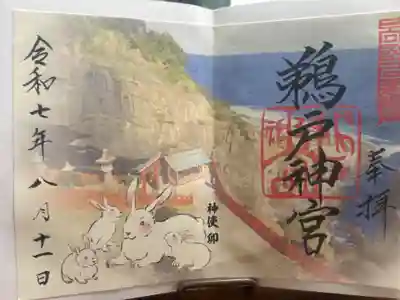 奉拝
鵜戸神宮
神使 卯
令和七年八月十一日